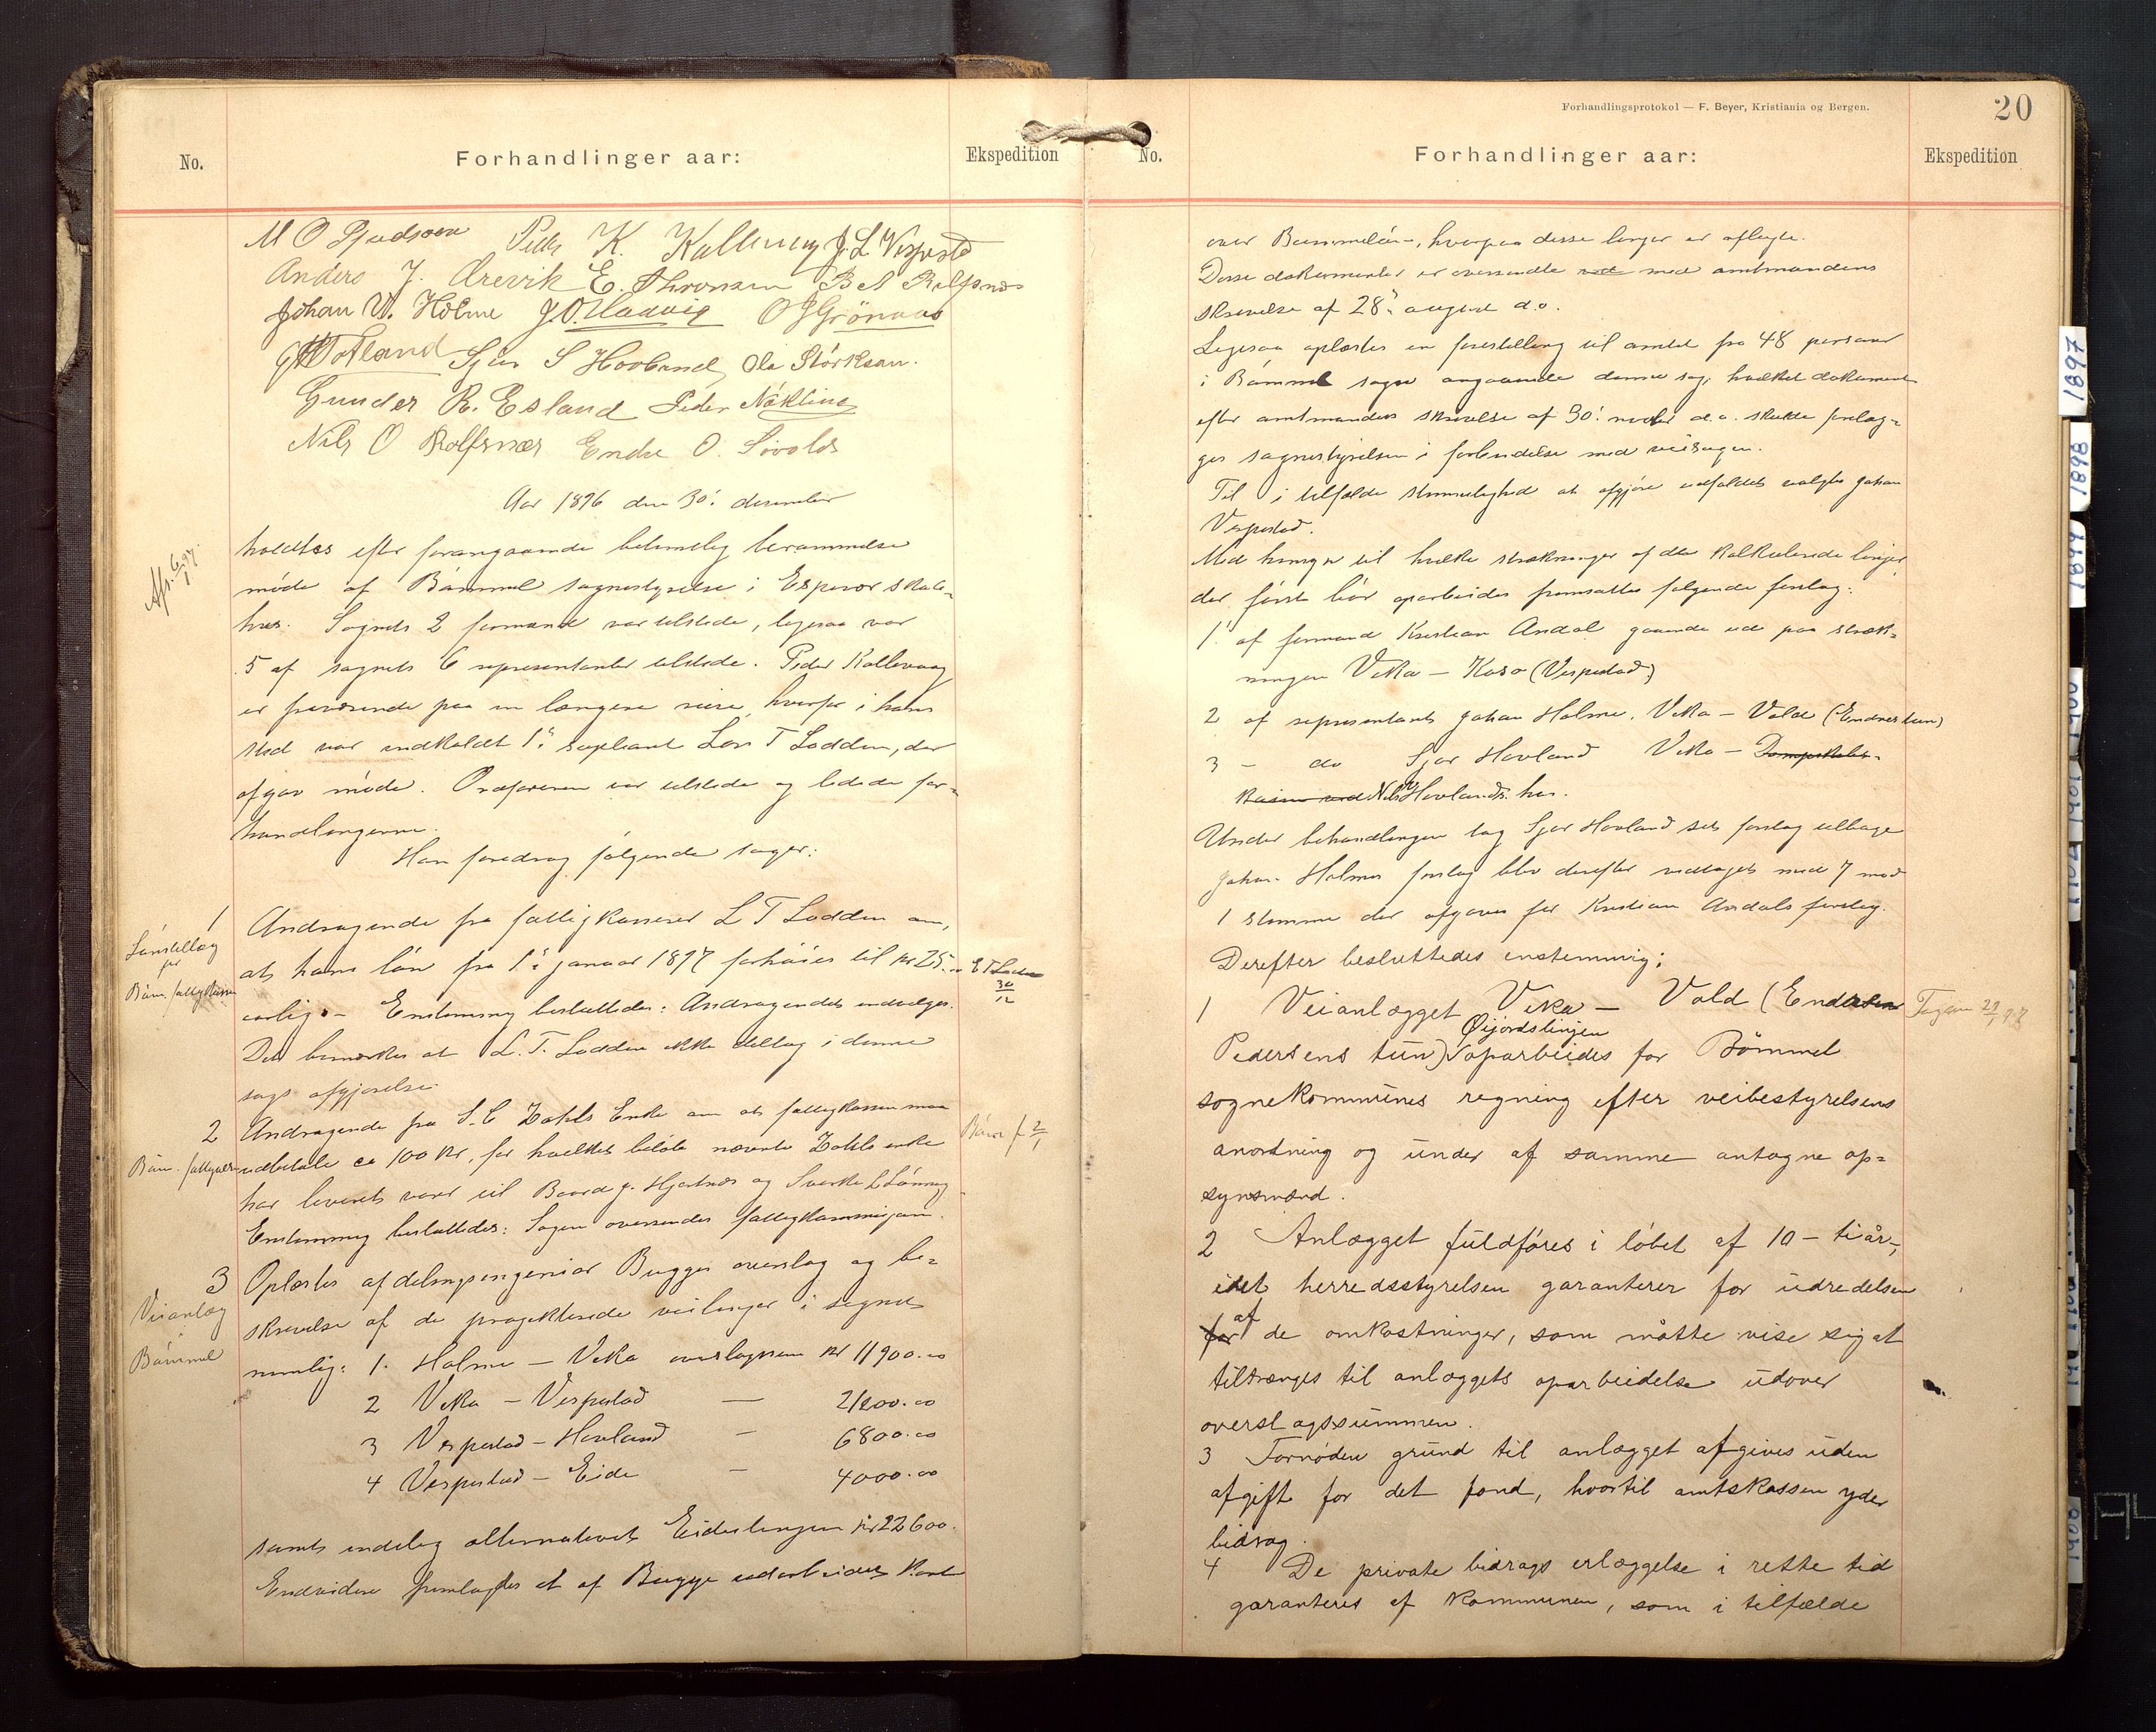 No.
Forhandlinger aar:
Ekspedition
M O Sjudsoen Peder K. Kallevaag J. L Vespestd
Anders J. Ørevik E. Thronsen B A Rolfsnes
Johan W. Holme J. O. Hadvig O J Grönaas
G H Totland Sjur S Hovland, Ola Störksen.
Gunder R. Esland Peder Nökling
Nils O Rolfsnæs Endre O. Sivolds
Aar 1896 den 30. desember
Afs. 6/1 97.
holdtes efter forangaaende betimelig berammelse
møde af Bømmel sognestyrelse i Espevær skole-
hus. Sognets 2 formænd var tilstede, ligesaa var
5 af sognets 6 representanter tilstede. Peder Kallevaag
er fraværende paa en længere reise, hvorfor i hans
sted var indkaldt 1ste supleant Lars T Lodden, der
afgav møde. Ordføreren var tilstede og ledede for-
handlingerne.
Han foredrog følgende sager:
1
Lönstillæg
for
Böm. fattigkasser
Andragende fra fattigkasserer L T Lodden om,
at hans løn fra 1ste januar 1897 forhøies til kr 25.00
aarlig. - Enstemmig besluttedes: Andragendet indvilges.
Det bemerkes at L. T. Lodden ikke deltog i denne
sags afgjørelse.
L T Lodden
30/12
2
Böm. fattigvæsen
Andragende fra S. C Dahls Enke om at fattigkassen maa
udbetale ca 100 kr, for hvilket beløb nævnte Dahls enke
har leveret varer til Baard J. Hjertnæs og Sverke L Lönning
Enstemmig besluttedes: Sagen oversendes fattigkommisjonen.
Böm f 2/1
3
Veianlæg
i
Bömmel
Oplæstes afdelingsingeniør Bugges overslag og be-
skrivelse af de projekterede veilinjer i sognet
nemlig: 1. Holme - Vika overslagssum kr 11900.00
2 Vika - Vespestad — 21200.00
3 Vespestad - Hovland — 6800.00
4 Vespestad - Eide — 4000.00
samt endelig alternativet Eideslinjen kr 22600.
Endvidere fremlagdes et af Bugge udarbeidet kart
Forhandlingsprotokol — F. Beyer, Kristiania og Bergen.
20
No.
Forhandlinger aar:
Ekspedition
over Bømmeløen, hvorpaa disse linjer er aflagte.
Disse dokumenter er oversendte med amtmandens
skrivelse af 28. august d.a.
Ligesaa oplæstes en forestilling til amtet fra 48 personer
i Bømmel sogn angaaende denne sag, hvilket dokument
efter amtmandens skrivelse af 30. novbr d.a. skulde forelæg-
ges sognestyrelsen i forbindelse med veisagen.
Til i tilfælde stemmelighed at afgjøre udfaldet valgtes Johan
Vespestad.
Med hensyn til hvilke strækninger af de kalkulerede linjer
der først bør oparbeides fremsattes følgende forslag:
1. af formand Kristian Andal gaaende ud paa stræk-
ningen Vika - Kaso (Vespestad)
2 af representant Johan Holme, Vika - Vold (Endrestun)
3 - do Sjur Hovland Vika - Dampskibs-
kaien ved Nils Hovlands hus.
Under behandlingen tog Sjur Hovland sit forslag tilbage
Johan Holmes forslag blev derefter vedtaget med 7 mod
1 stemme der afgaves for Kristian Andals forslag.
Derefter besluttedes enstemmig:
1 Veianlægget Vika - Vold (Endresen
Øijordslinjen
Pedersens tun) oparbeides for Bömmel
sognekommunes regning efter veibestyrelsens
anordning og under af samme antagne op-
synsmænd.
2 Anlægget fuldføres i løbet af 10 - tiår-,
idet herredsstyrelsen garanterer for udredelsen
for af de omkostninger, som måtte vise sig at
tiltrænges til anlæggets oparbeidelse udover
overslagssummen.
3 Fornøden grund til anlægget afgives uden
afgift for det fond, hvortil amtskassen yder
bidrag.
4 De private bidrags erlæggelse i rette tid
garanteres af kommunen, som i tilfælde
1897
1898
1899
1900
1901
1902
1908